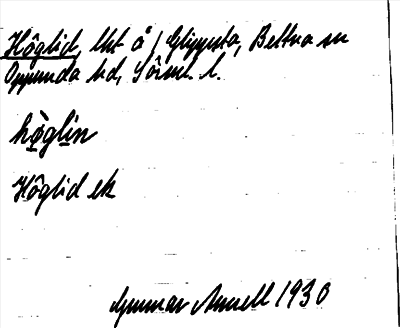 Höglid, lht å Glippsta, Bettna sn
Oppunda hd, Sörml. l.
hò̤gli̤n
Höglid ek
Gunnar Annell 1930